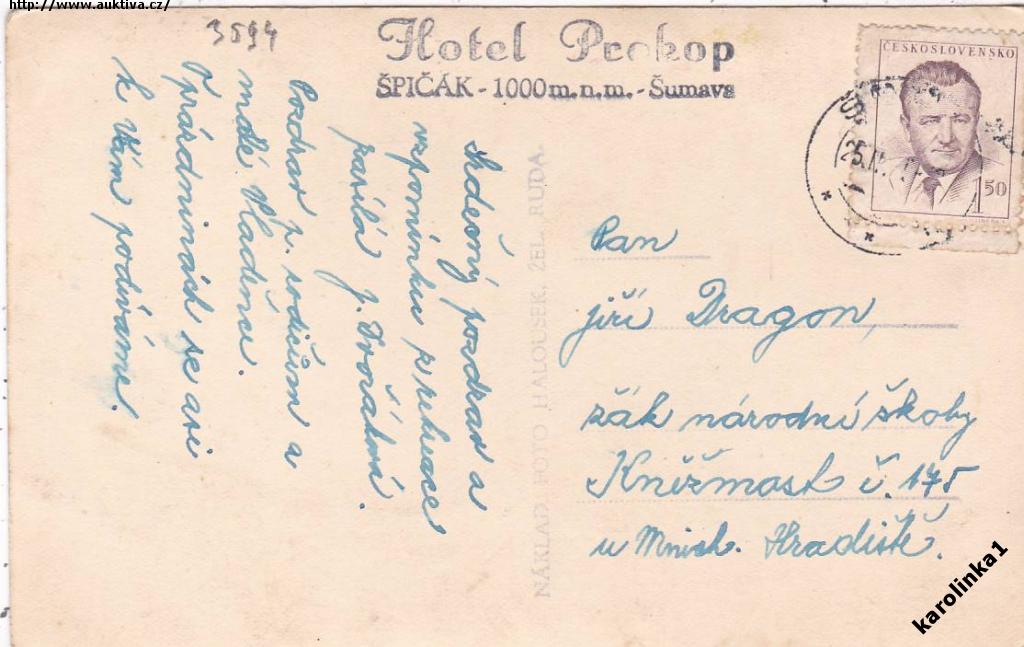 http://www.auktiva.cz/
3594
Hotel Prokop
ŠPIČÁK - 1000 m.n.m. - Šumava
ČESKOSLOVENSKO
1 50
Srdečný pozdrav a
vzpomínku z rekreace
posílá J. Dvořáková.
Pozdrav p. rodičům a
mdé Vladěnce.
O prázdninách se asi
k Vám podíváme.
NÁKLAD FOTO HALOUSEK, ŽEL. RUDA.
Pan
Jiří Dragon,
žák národní školy
Kněžmost č. 175
u Mnich. Hradiště.
karolinka1